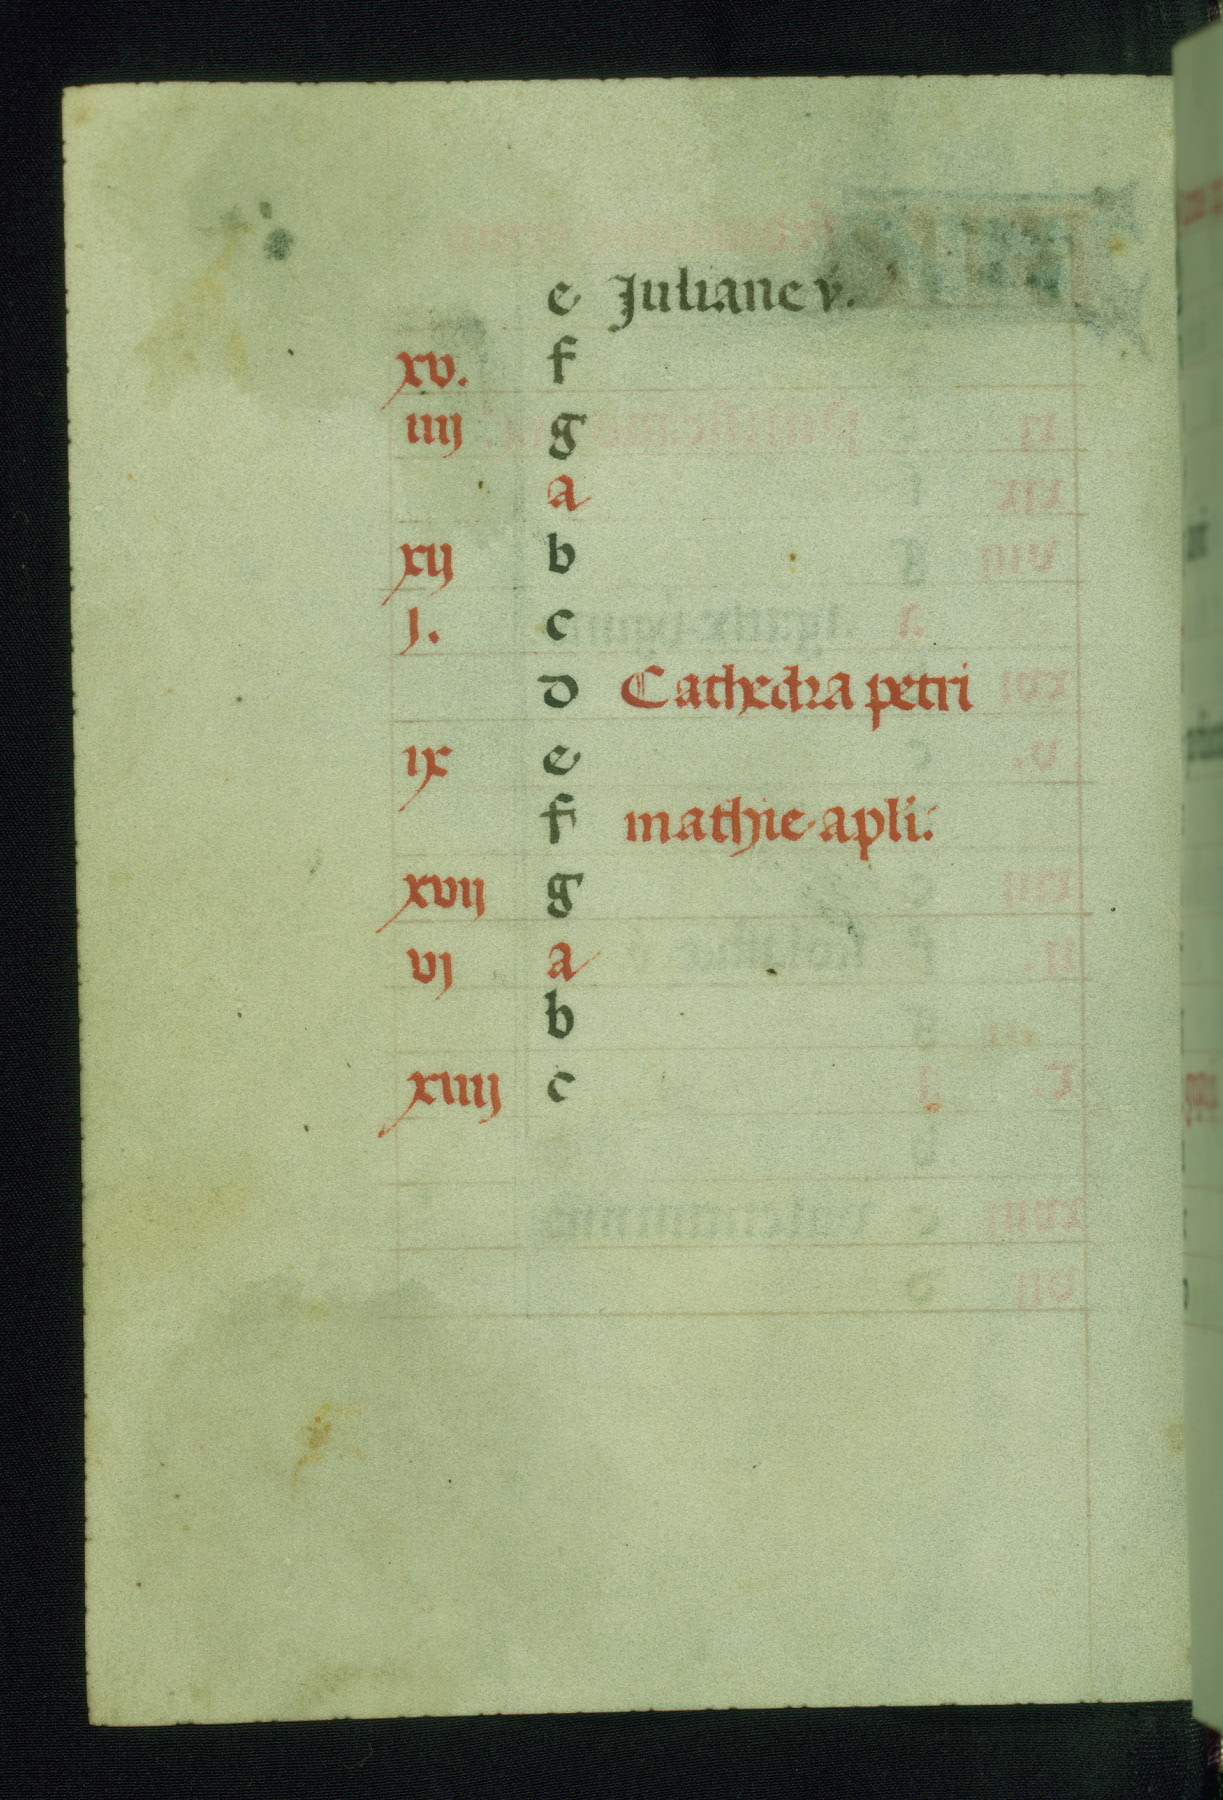 e Juliane v.
xv. f
iiij g
a
xij b
j. c
d Cathedra petri
ix e
f mathie apli.
xvij g
vj a
b
xiiij c